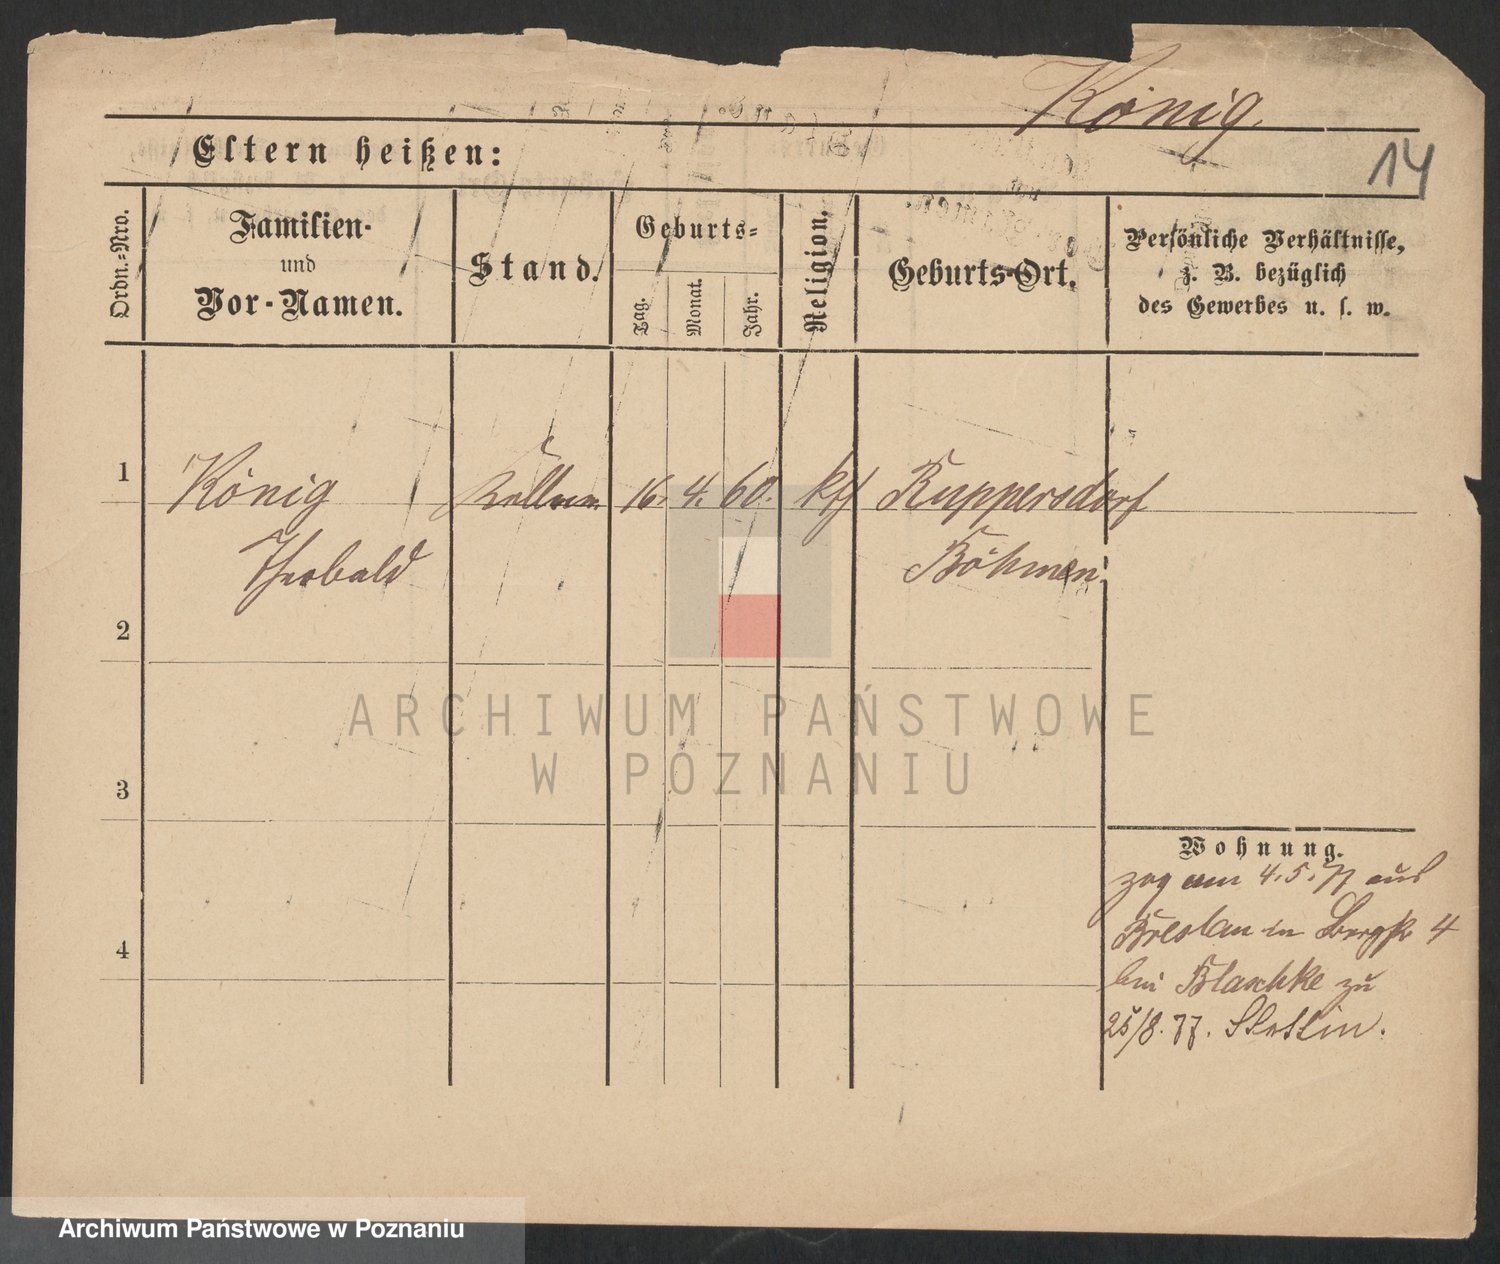 König.
14
Eltern heißen:
Ordn.-Nro.
Familien-
und
Vor-Namen.
Stand.
Geburts-
Tag.
Monat.
Jahr.
Religion.
Geburts-Ort.
Persönliche Verhältnisse,
z. B. bezüglich
des Gewerbes u. s. w.
1 König Kellner 16. 4. 60. kth Ruppersdorf
Theobald Böhmen
2
ARCHIWUM PAŃSTWOWE
W POZNANIU
3
Wohnung.
zog am 4.5.77 aus
Breslau in Bergstr 4
4
bei Blaschke zu
25/8.77. Stettin.
Archiwum Państwowe w Poznaniu